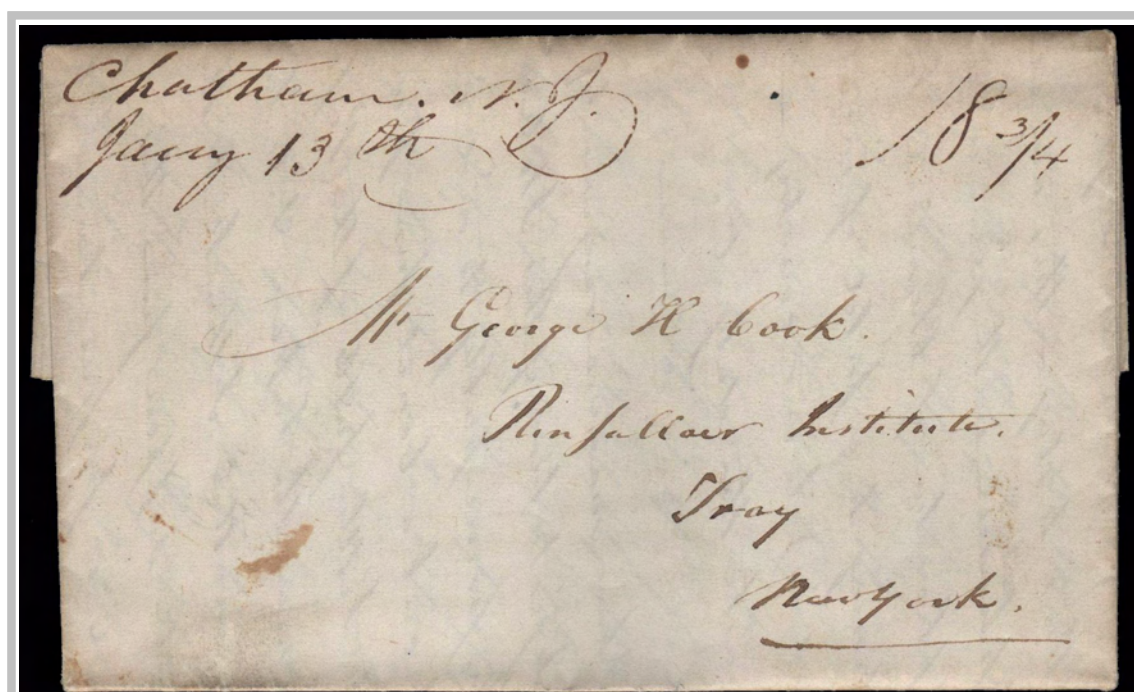 Chatham. N. J.
Jany 13th
18 3/4
Mr George H Cook.
Rensallaer Institute.
Troy
New York.